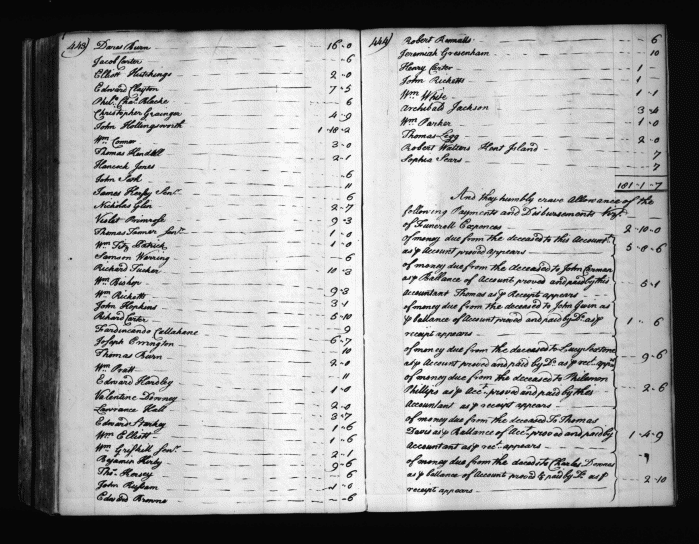 443
Danes Burn 16-0
Jacob Carter -6
Elliott Hutchings 2-0
Edward Clayton 7-5
Phil. Cha. Blacke -6
Christopher Grainger 4-9
John Hollingsworth 1-10-2
Wm Comor 3-0
Thomas Hendall 2-1
Hancock Jones
John Salt -6
James Keefey Senr. 11
Nicholas Glin 2-7
Violet Primrose 9-3
Thomas Tanner Senr. 1-0
Wm Fitz Patrick 1-0
Samson Warring -6
Richard Tucker 10-3
Wm Bishop
Wm Ricketts 9-3
John Hopkins 3-1
Richard Carter 5-10
Ferdinando Callahane 9
Joseph Errington 6-7
Thomas Burn 10
Wm Pratt 2-0
Edward Hardley 11
Valentine Downey 1-0
Lawrance Hall 2-0
Edward Starkey
Wm Elliott 1-6
Wm Senr. 2-1
Benjamin Kerby 9-6
Thos. Horsey -6
John Rustam -0
Edward Browne -6
444
Robert 6
Jeremiah Gresenham 10
Henry Carter 1-
John Ricketts 1-
Wm White 1-1
Archibald Jackson 3-4
Wm Parker 1-0
Thomas Legg 2-0
Robert Walters Kent Island 7
Sophia Sears 7
181-1-7
And they humbly crave Allowance of the
following Payments and Disbursements
Of Funerall Expences 2-10-0
of money due from the deceased to this Accountt.
as p Account proved appears 5-0-6
of money due from the deceased to John Comer
as p Ballance of Account proved and paid by this 5-1
Accountant Thomas as p Receipt appears
of money due from the deceased to John Gwin as
p ballance of Account proved and paid by Do. as p 1-6
receipt appears
of money due from the deceased to Lucy Sextone
as p Account proved and paid by Do. as p rect. apps. 9-6
of money due from the deceased to Philemon
Phillips as p Acct. proved and paid by this 2-6
Accountant as p receipt appears
of money due from the deceased To Thomas
Davis as p Ballance of Acct. proved and paid by 1-4-9
Accountant as p rect. appears
of money due from the deceased to Charles Downes
as p ballance of Account proved & paid by Do. as p 2-10
receipt appears